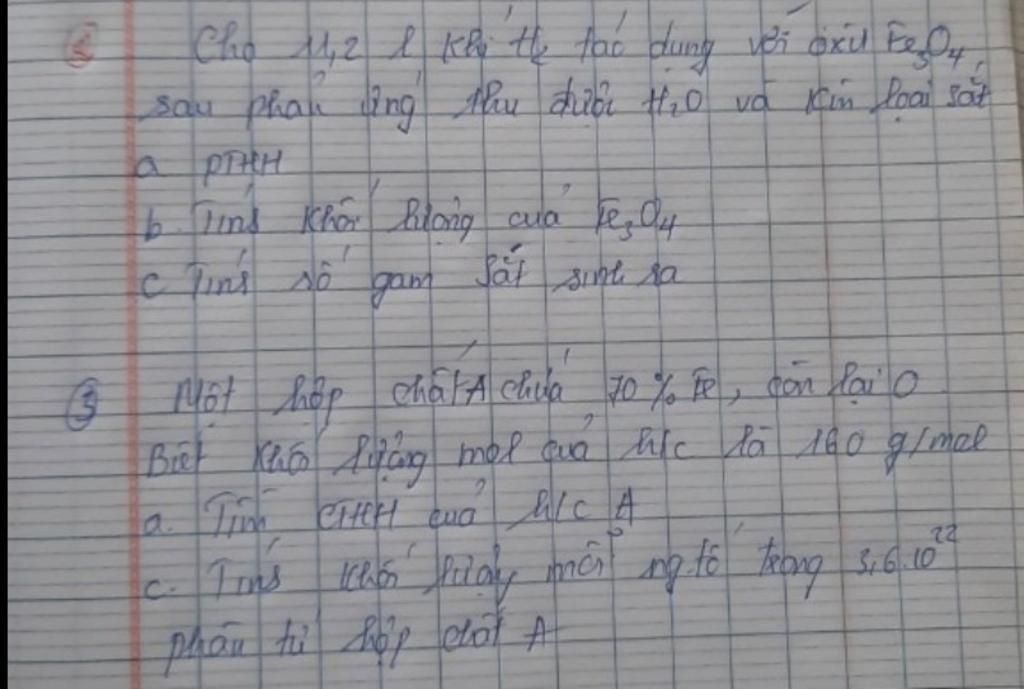 ② Cho 11,2 l khí H₂ tác dụng với oxit Fe₃O₄,
sau phản ứng thu được H₂O và kim loại sắt
a PTHH
b. Tính khối lượng của Fe₃O₄
c Tính số gam sắt sinh ra
③ Một hợp chất A chứa 70 % Fe, còn lại O
Biết khối lượng mol của h/c là 160 g/mol
a. Tìm CTHH của h/c A
c. Tính khối lượng mỗi ng.tố trong 3,6.10²²
phân tử hợp chất A